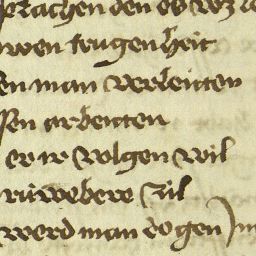 sprachen den ob wz
wen trugenheit
en man verleitten
sen arbeitten
er ir volgen wil
ruwebere zil
werd man bogen In